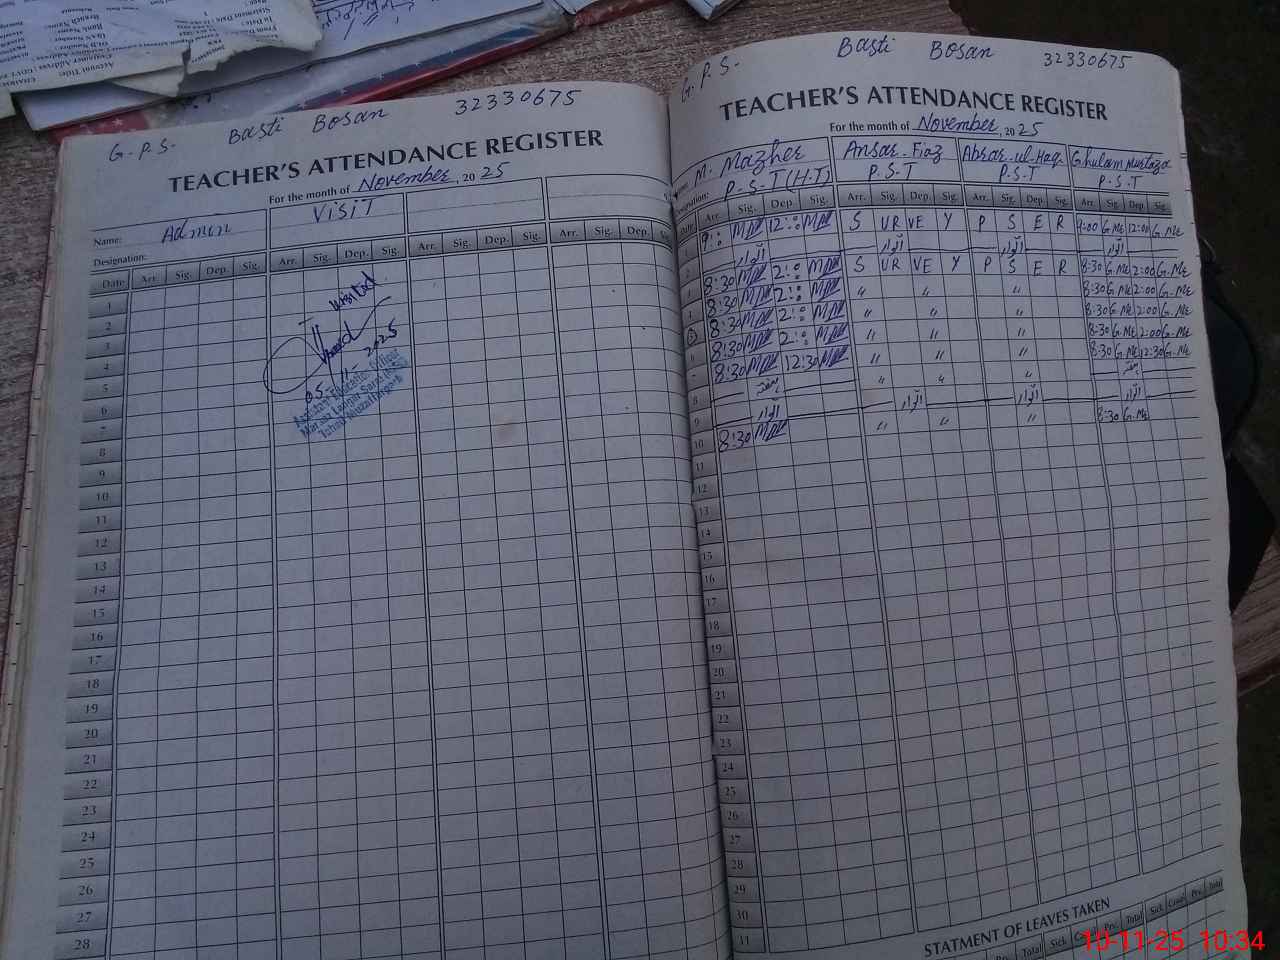 G.P.S. Basti Bosan 32330675
TEACHER'S ATTENDANCE REGISTER
For the month of November, 2025
Name: Admin VISIT
Designation:
Date Arr. Sig. Dep. Sig. Arr. Sig. Dep. Sig. Arr. Sig. Dep. Sig. Arr. Sig. Dep. Sig.
1
2
3
4
5
6
7
8
9
10
11
12
13
14
15
16
17
18
19
20
21
22
23
24
25
26
27
28
Visited
05-11-2025
Assistant Education Officer
G.P.S. Basti Bosan 32330675
TEACHER'S ATTENDANCE REGISTER
For the month of November, 2025
M. Mazher Ansar Fiaz Absar-ul-Haq Ghulam Murtaza
Designation: P-S-T (H-T) P.S.T P.S.T P.S.T
Date Arr. Sig. Dep. Sig. Arr. Sig. Dep. Sig. Arr. Sig. Dep. Sig. Arr. Sig. Dep. Sig.
1 9:00 12:00 S UR VE Y P S E R 9:00 G.ME 12:00 G.ME
2 اتوار اتوار اتوار اتوار
8:30 2:00 S UR VE Y P S E R 8:30 G.ME 2:00 G.ME
8:30 2:00 〃 〃 〃 8:30 G.ME 2:00 G.ME
8:30 2:00 〃 〃 〃 8:30 G.ME 2:00 G.ME
8:30 2:00 〃 〃 〃 8:30 G.ME 2:00 G.ME
8:30 12:30 〃 〃 〃 8:30 G.ME 12:30 G.ME
8 ہفتہ 〃 〃 〃 ہفتہ
9 اتوار اتوار اتوار اتوار
10 8:30 〃 〃 〃 8:30 G.ME
11
12
13
14
15
16
17
18
19
20
21
22
23
24
25
26
27
28
29
30
31
STATMENT OF LEAVES TAKEN
Prv. Total Sick Total Sick Casual Prv. Total
10-11-25 10:34